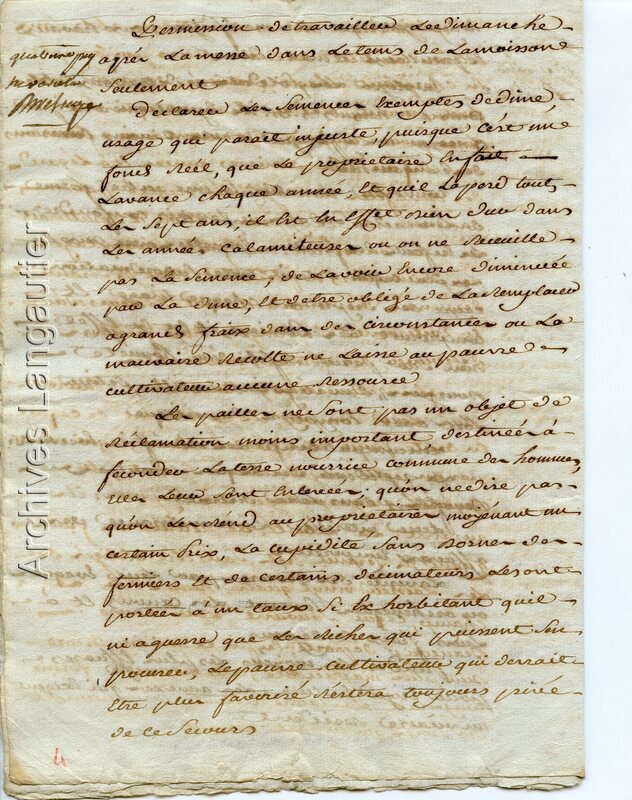 Permission de travailler Le dimanche
apres La messe dans Le tems de La moisson
Seulement
quatrieme page
ne varietur
Declarer Les Semences Exemptes de dime
usage qui parait injuste, puisque c'est un
fond Réel, que Le proprietaire En fait
L'avance chaque année, Et qu'il La perd touts
Les Sept ans, il Est En Effet rien dur dans
Les années Calamiteuses ou on ne Recueille
pas La Semence, de La voir Encore diminuée
par La dime, Et d'etre obligé de La Remplacer
a grands fraix dans des circonstances ou La
mauvaise Recolte ne Laisse au pauvre
cultivateur aucune Ressource
Les pailles ne Sont pas un objet de
Réclamation moins important destinées à
feconder La terre nourrice commune des hommes,
Elles Leur Sont Enlevées, qu'on ne dise pas
qu'on Les Rend au proprietaires moyenant un
certain Prix, La Cupidité Sans Bornes des
fermiers Et de certains décimateurs Les ont
portées à un taux Si Exhorbitant qu'il
ni a guerre que Les Riches qui puissent S'en
procurer, Le pauvre Cultivateur qui devrait
Etre plus favorisé Restera toujours privé
de ce Secours
4
Archives Langautier